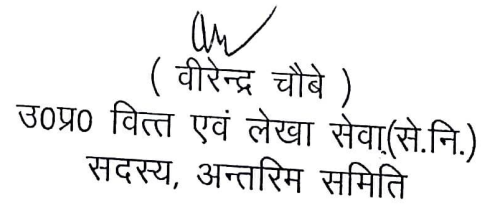 ( वीरेन्द्र चौबे )
उ०प्र० वित्त एवं लेखा सेवा(से.नि.)
सदस्य, अन्तरिम समिति